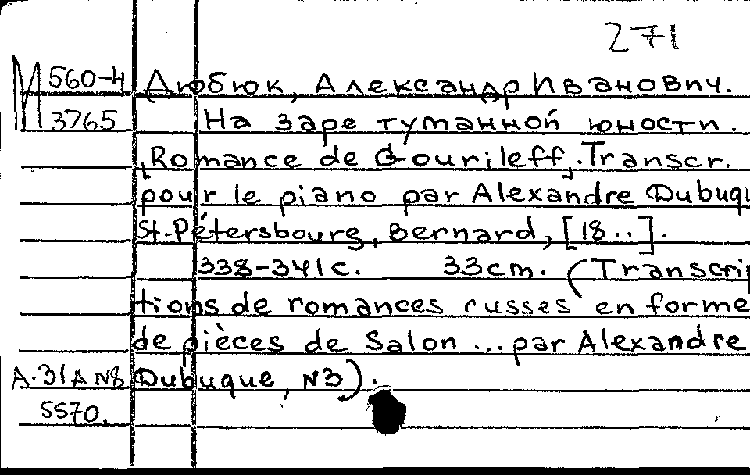 271
М 560-4 Дюбюк, Александр Иванович.
3765 На заре туманной юности.
Romance de Gourileff. Transcr.
pour le piano par Alexandre Dubuqu
St.-Pétersbourg, Bernard, [18..].
338-341с. 33cm. (Transcrip
tions de romances russes en forme
de pièces de Salon ... par Alexandre
А.31А №8 Dubuque, №3).
5570.